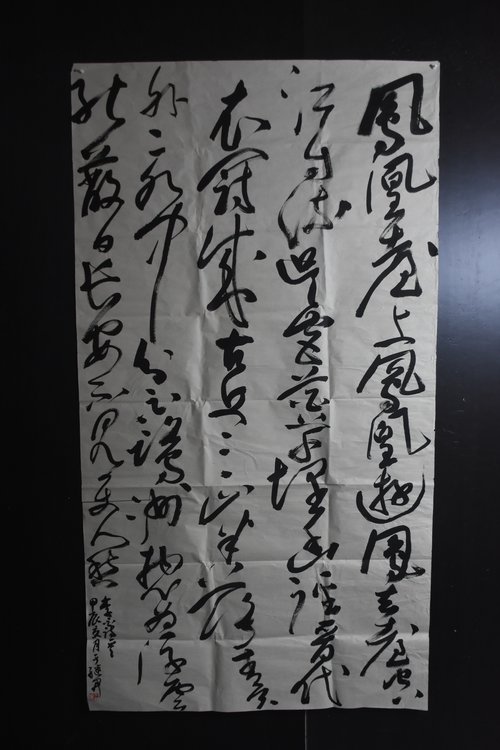 鳳凰臺上鳳凰遊鳳去臺空
江自流吳宮花草埋幽徑晉代
衣冠成古丘三山半落青天
外二水中分白鷺洲總為浮雲
能蔽日長安不見使人愁
甲辰